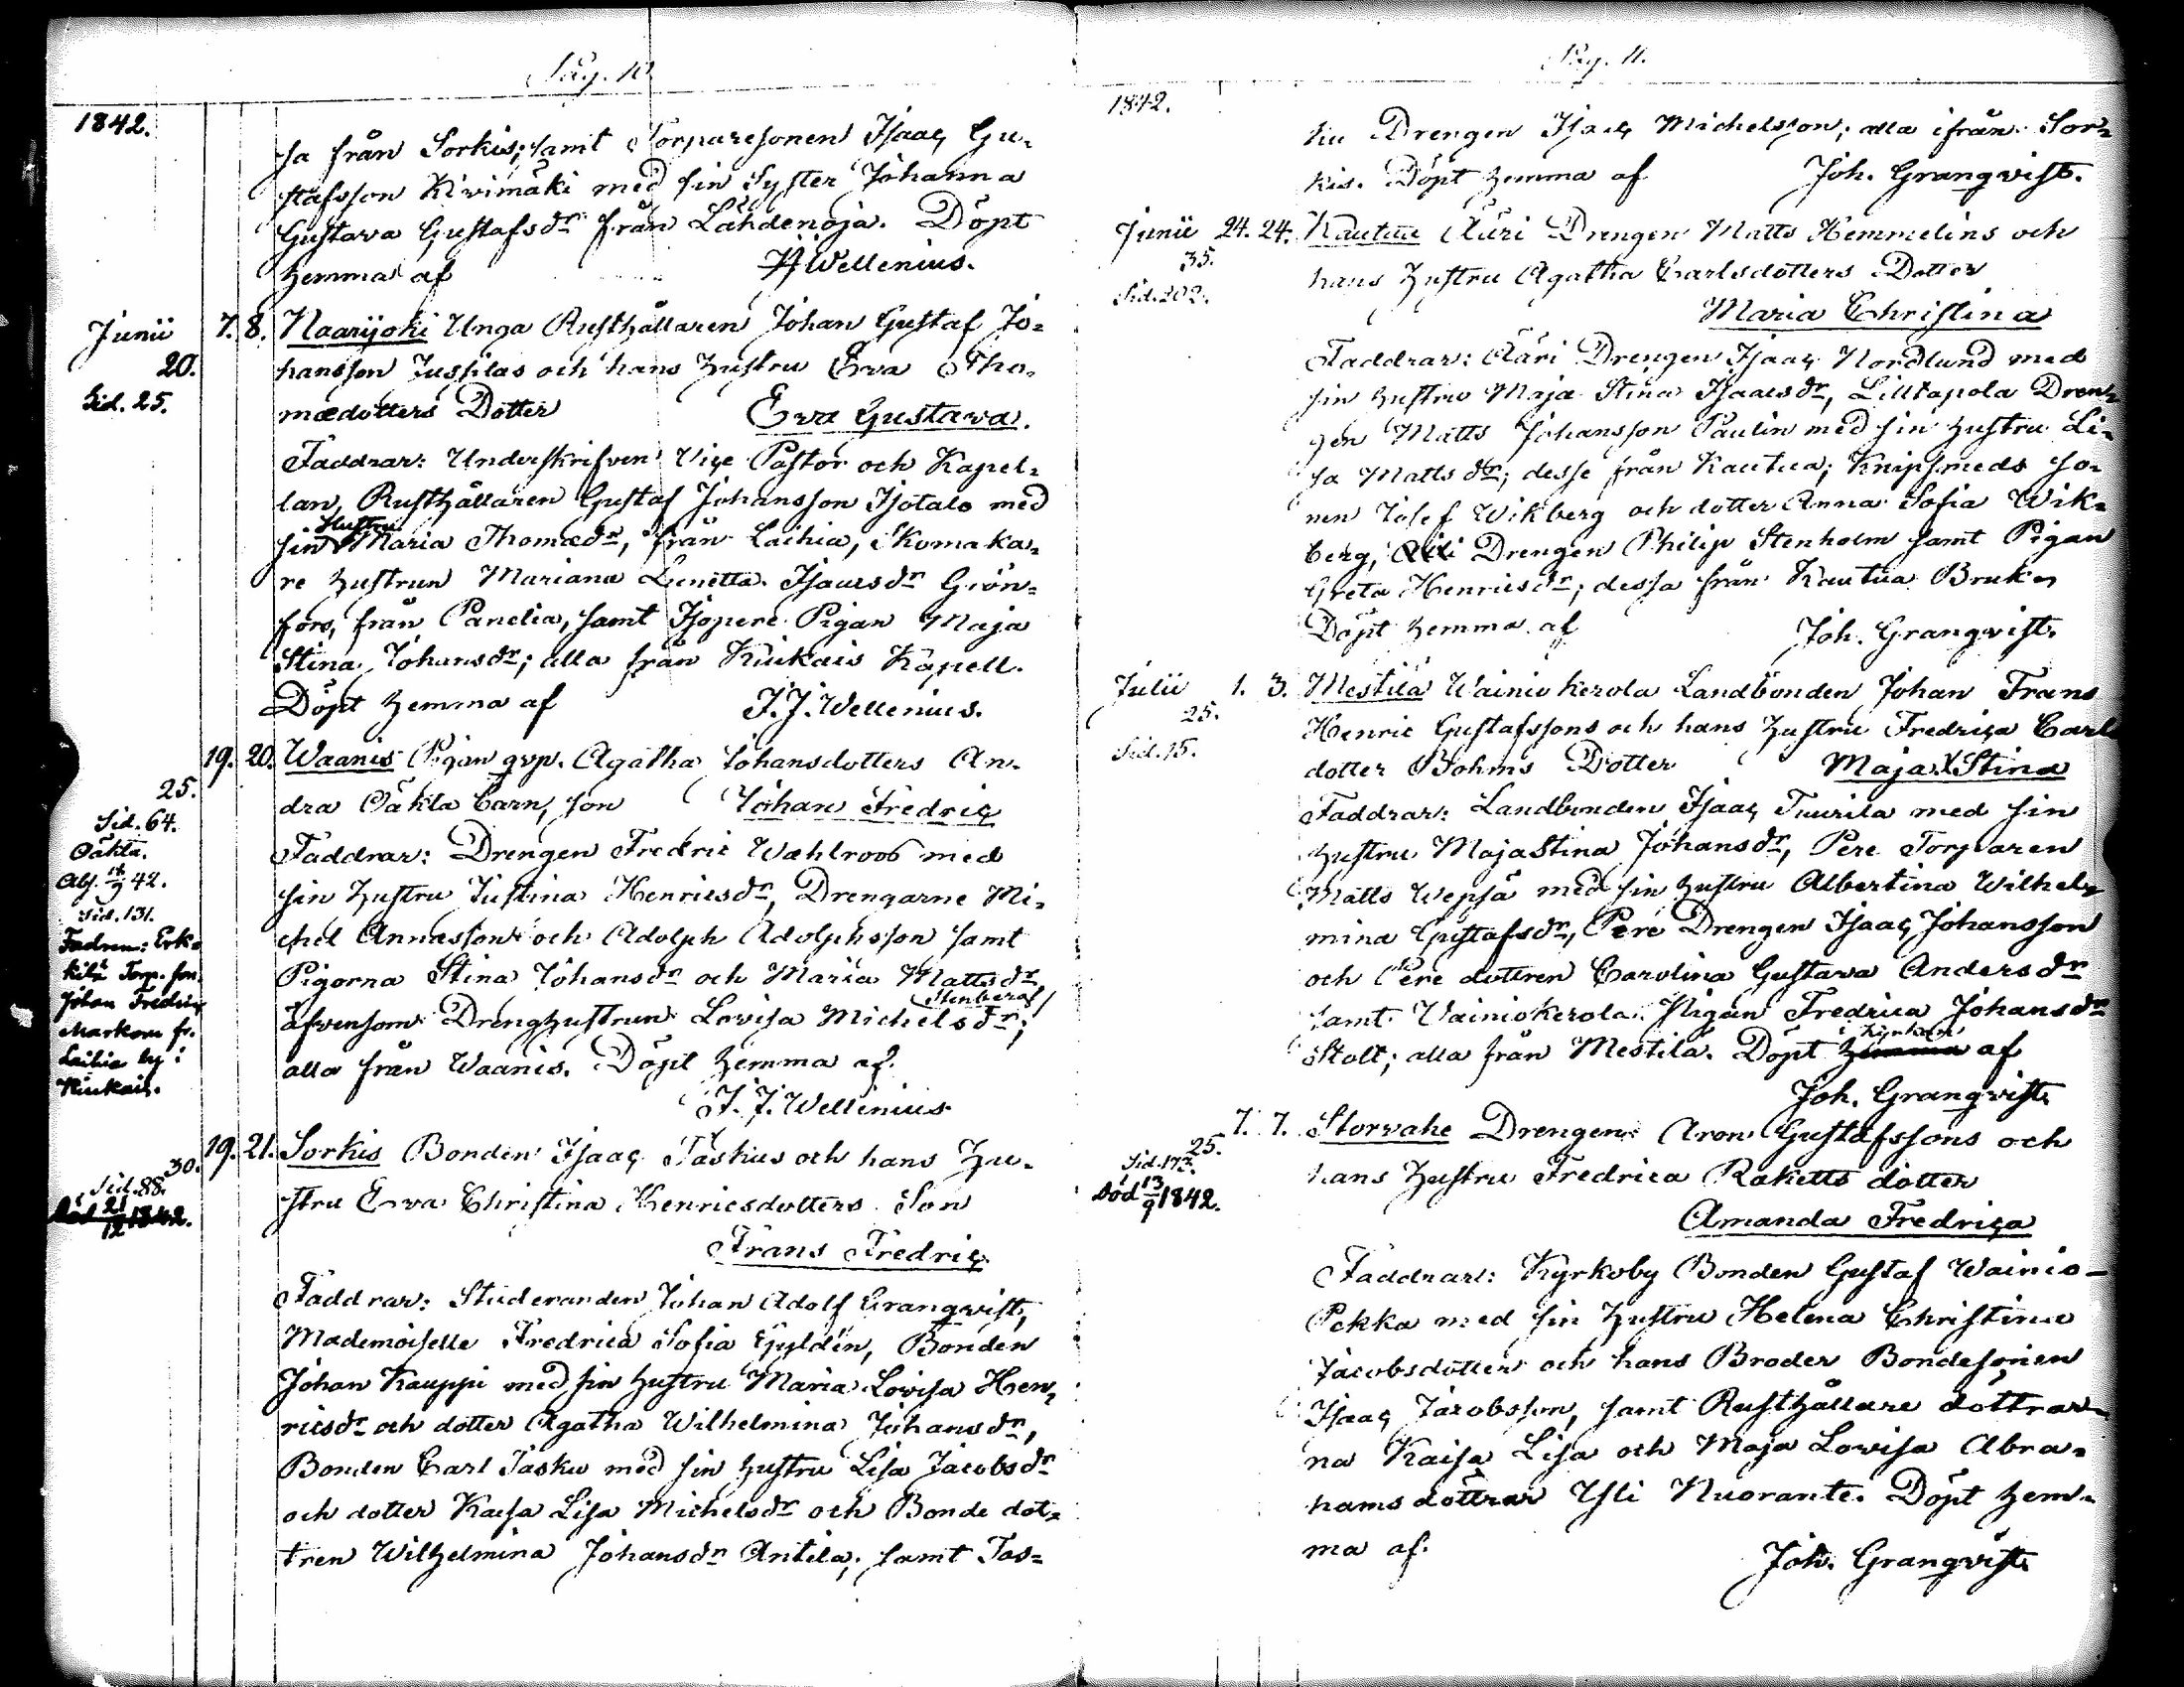 Pag. 10.
1842.
sa från Sorkis; samt Torparesonen Isaac Gu-
stafsson Kivimäki med sin Syster Johanna
Gustava Gustafsdr från Lähdenoja. Döpt
hemma af Wellenius.
Junii 7. 8. Naarijoki Unga Rusthållaren Johan Gustaf Jo-
20. hansson Jussilas och hans hustru Eva Tho-
Sid. 25. mædotters Dotter Eva Gustava.
Faddrar: Underskrifven Vice Pastor och Kapel-
lan, Rusthållaren Gustaf Johansson Isotalo med
sin Hustru Maria Thomædr, från Laihia, Skomaka-
re hustrun Mariana Lunetta Isaacsdr Grön-
fors, från Panelia, samt Isopere Pigan Maja
Stina Johansdr; alla från Kiukais Kapell.
Döpt hemma af J. J. Wellenius.
19. 20. Waanis Pigan qvp. Agatha Johansdotters An-
25. dra Oäkta barn, son Johan Fredric
Sid. 64.
Oäkta.
42.
Sid. 131.
Fadren: Erk-
kilä Torp. son
Johan Fredric
fr.
Laihia by i
Kiukais.
Faddrar: Drengen Fredric Wahlroos med
sin hustru Justina Henricsdr, Drengarne Mi-
chel Annæsson och Adolph Adolphsson samt
Pigorna Stina Johansdr och Maria Mattsdr
äfvensom Drenghustrun Lovisa Michelsdr Stenberg;
alla från Waanis. Döpt hemma af
J. J. Wellenius
19. 21. Sorkis Bonden Isaac Taskus och hans hu-
30. stru Eva Christina Henricsdotters Son
Sid. 88.
Död 21/12 1842.
Frans Fredric
Faddrar: Studeranden Johan Adolf Granqvist,
Mademoiselle Fredrica Sofia Gyldén, Bonden
Johan Kauppi med sin hustru Maria Lovisa Hen-
ricsdr och dotter Agatha Wilhelmina Johansdr,
Bonden Carl Tasku med sin hustru Lisa Jacobsdr
och dotter Kaisa Lisa Michelsdr och Bonde dot-
tren Wilhelmina Johansdr Antila; samt Tas-
Pag. 11.
1842.
ku Drengen Isaac Michelsson; alla ifrån Sor-
kis. Döpt hemma af Joh. Granqvist.
Junii 24. 24. Kautua Äüri Drengen Matts Hemmelins och
35. hans hustru Agatha Carlsdotters Dotter
Sid. 202.
Maria Christina
Faddrar: Äüri Drengen Isaac Nordlund med
sin hustru Maja Stina Isaacsdr, Lilltapola Dren-
gen Matts Johansson Paulin med sin hustru Li-
sa Mattsdr; desse från Kautua; Knipsmeds so-
nen Josef Wikberg och dotter Anna Sofia Wik-
berg, Drengen Philip Stenholm samt Pigan
Greta Henricsdr; dessa från Kautua Bruk.
Döpt hemma af Joh. Granqvist.
Julii 1. 3. Mestilä Wainiokerola Landbonden Johan Frans
25. Henric Gustafssons och hans hustru Fredrica Carls
Sid. 15. dotter Bohms Dotter Maja Stina
Faddrar: Landbonden Isaac Tuurila med sin
hustru Maja Stina Johansdr, Pere Torparen
Matts Wepsä med sin hustru Albertina Wilhel-
mina Gustafsdr, Pere Drengen Isaac Johansson
och Pere dottren Carolina Gustava Andersdr
samt Wainiokerola Pigan Fredrica Johansdr
Stolt; alla från Mestilä. Döpt i kyrkan af
Joh. Granqvist
7. 7. Storvahe Drengen Aron Gustafssons och
25. hans hustru Fredrica Raketts dotter
Sid. 173.
Död 13/9 1842.
Amanda Fredrica
Faddrar: Kyrkoby Bonden Gustaf Wainio-
Pekka med sin hustru Helena Christina
Jacobsdotter och hans Broder Bondesonen
Isaac Jacobsson, samt Rusthållare dottrar-
na Kaisa Lisa och Maja Lovisa Abra-
hams döttrar Yli Nuoranté. Döpt hem-
ma af. Joh. Granqvist